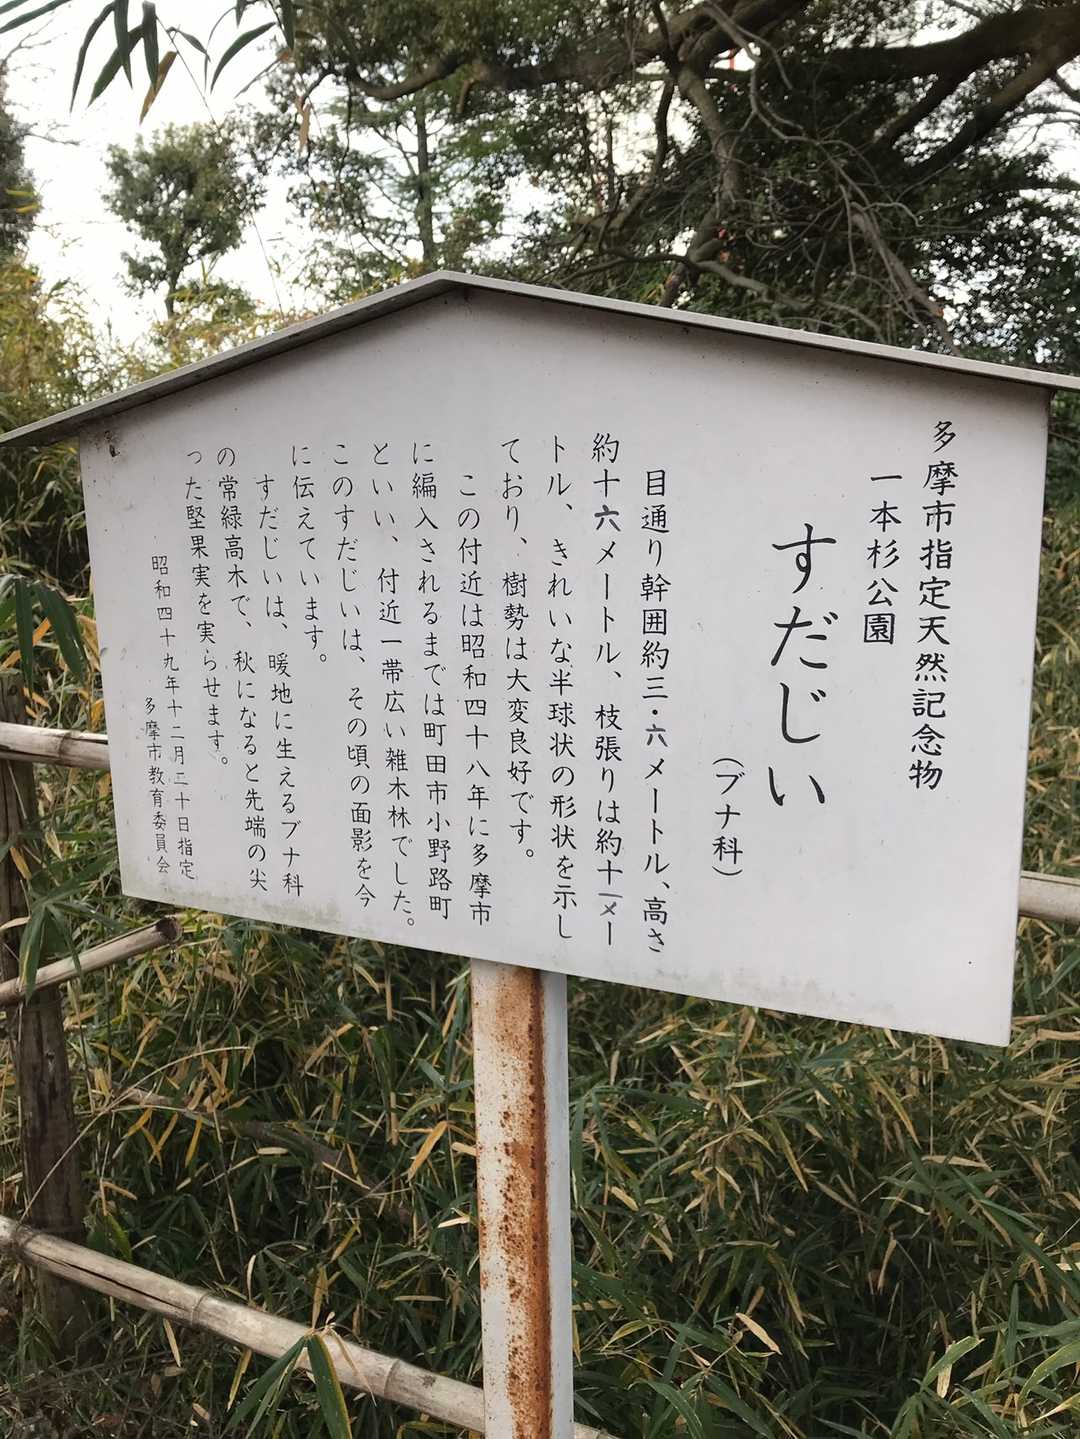 多摩市指定天然記念物
一本杉公園
すだじい
(ブナ科)
目通り幹囲約三・六メートル、高さ
約十六メートル、枝張りは約十一メー
トル、きれいな半球状の形状を示し
ており、樹勢は大変良好です。
この付近は昭和四十八年に多摩市
に編入されるまでは町田市小野路町
といい、付近一帯広い雑木林でした。
このすだじいは、その頃の面影を今
に伝えています。
すだじいは、暖地に生えるブナ科
の常緑高木で、秋になると先端の尖
った堅果実を実らせます。
昭和四十九年十二月二十日指定
多摩市教育委員会